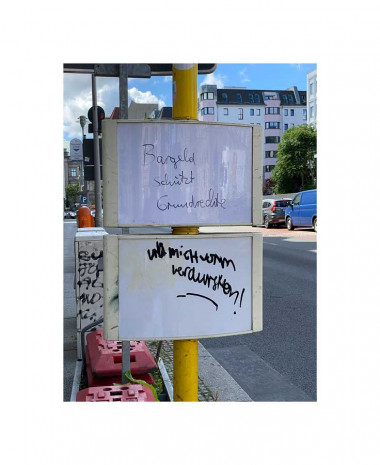 Bargeld
schützt
Grundrechte
und mich vorm
verdursten!